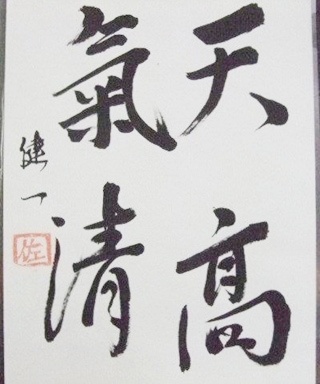 天髙
氣清
健一
佐